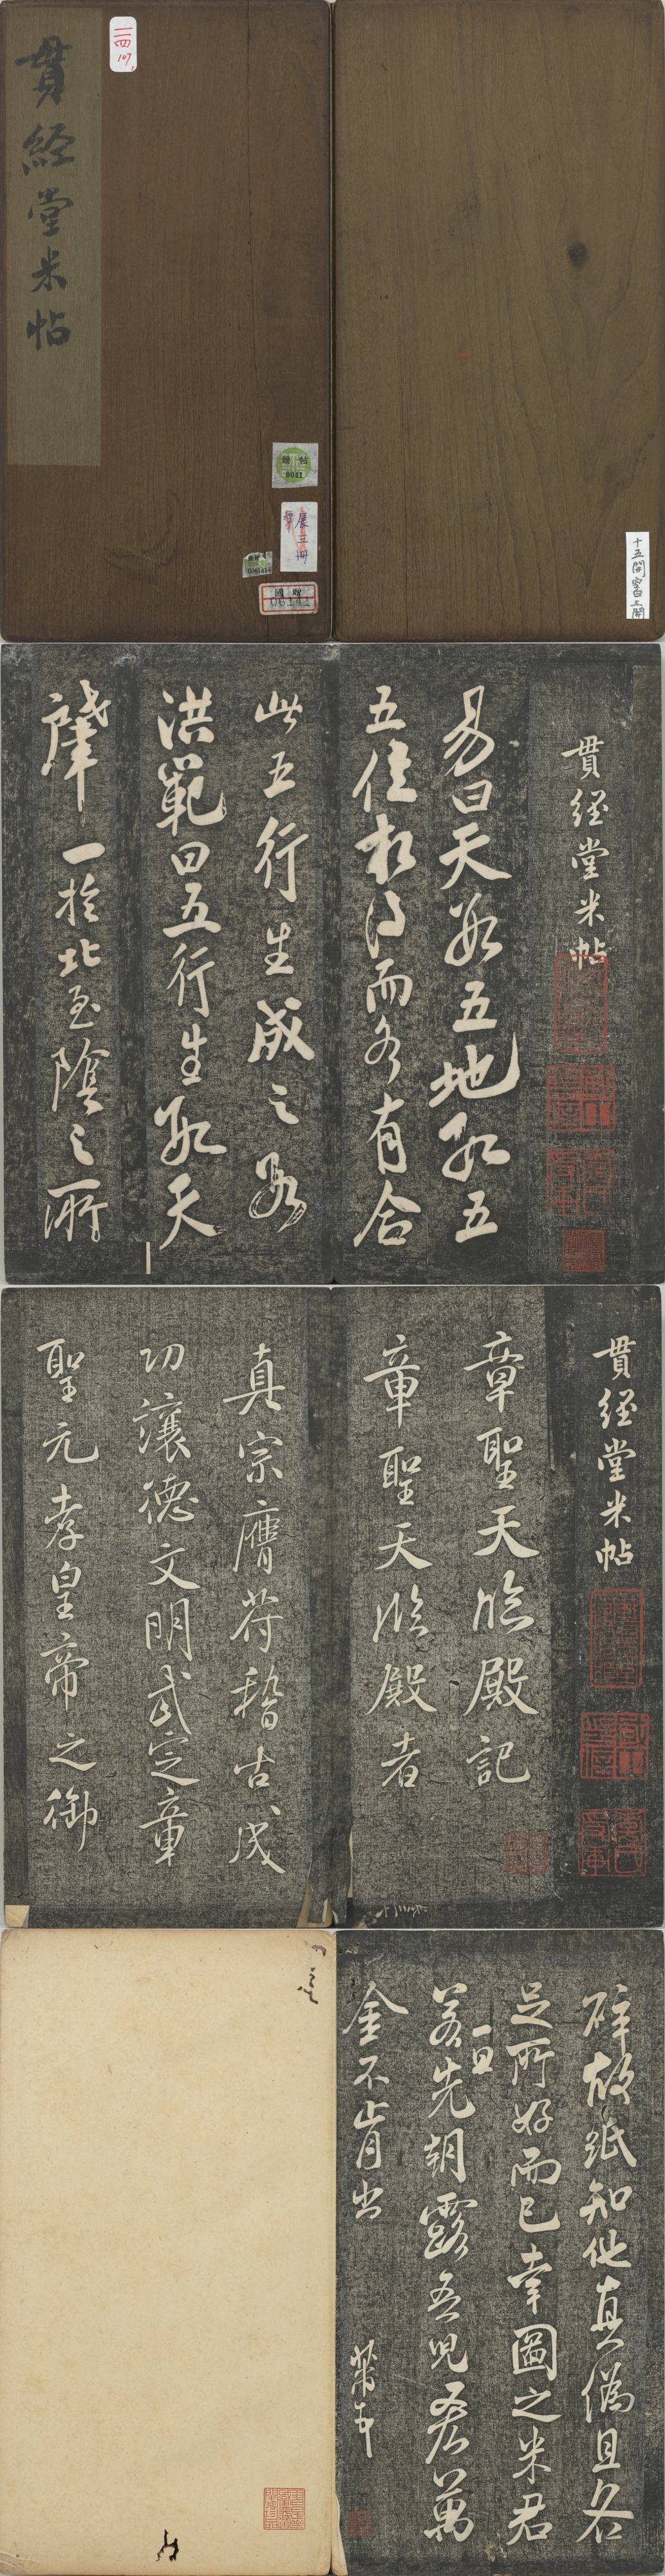 貫經堂米帖
二四
107
雜帖
0041
展三冊
國贈
06141
十五開
貫經堂米帖
易曰天數五地數五
五位相得而各有合
此五行生成之數
洪範曰五行生數天
肇一於北至陰之所
貫經堂米帖
章聖天臨殿記
章聖天臨殿者
真宗膺符稽古成
功讓德文明武定章
聖元孝皇帝之御
碎故紙知他真偽且各
足所好而已幸圖之米君
一旦
若先朝露吾兒吝萬
金不肯出
芾奉